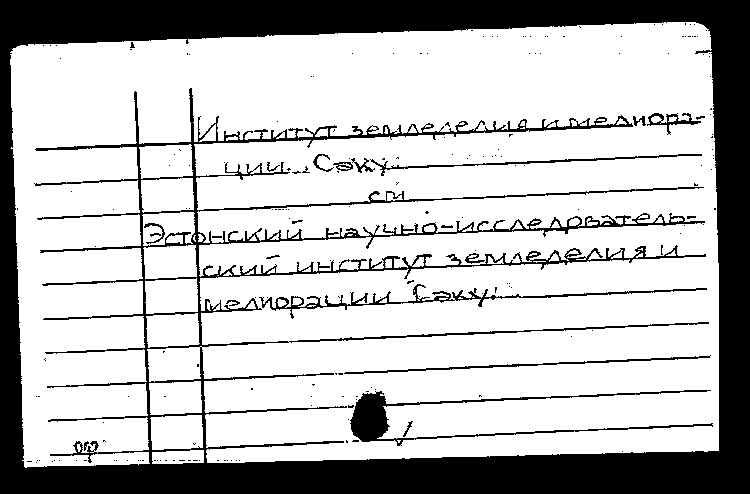 Институт земледелия и мелиора-
ции. Сэку.
см
Эстонский научно-исследователь-
ский институт земледелия и
мелиорации. Сэку.